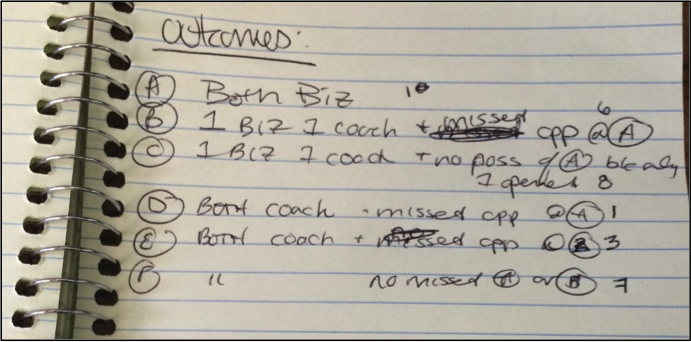 Outcomes:
A Both Biz 10
B 1 Biz 1 coach + missed opp @ A 6
C 1 Biz 1 coach + no poss of A bc only
1 opened 8
D Both coach - missed opp @ A 1
E Both coach + missed opp @ B 3
F " no missed A or B 7